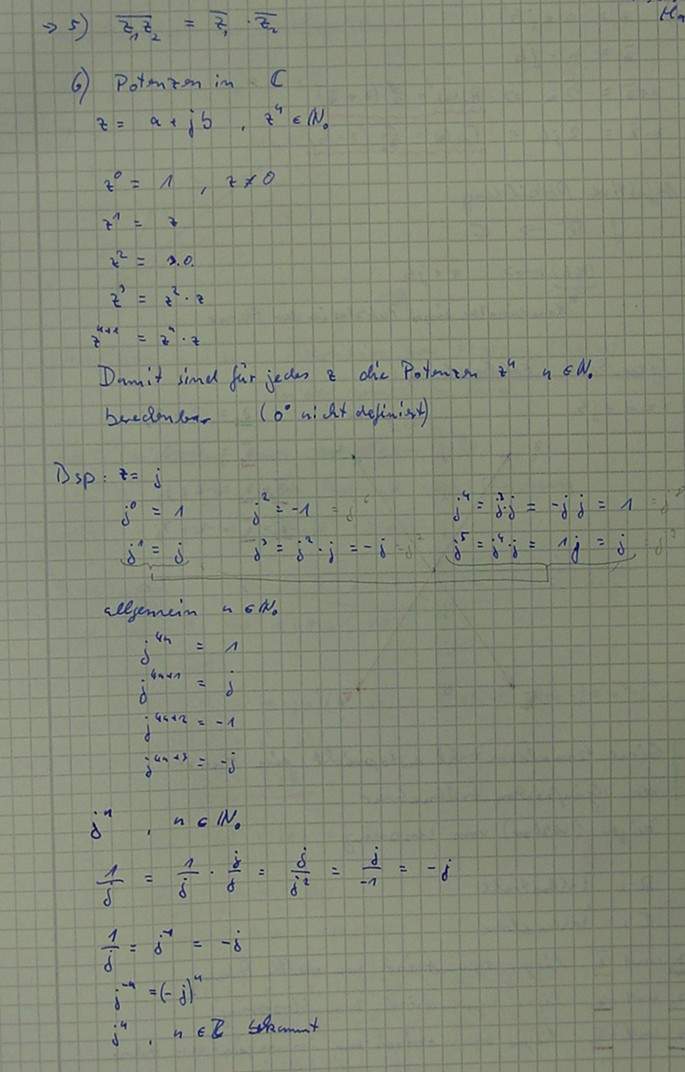 → 5) \overline{z₁z₂} = \overline{z₁} · \overline{z₂}
6) Potenzen in ℂ
z = a + jb , zⁿ ∈ ℕ₀
z⁰ = 1 , z ≠ 0
z¹ = z
z² = s.o.
z³ = z² · z
zⁿ⁺¹ = zⁿ · z
Damit sind für jedes z die Potenzen zⁿ n ∈ ℕ₀
berechenbar (0⁰ nicht definiert)
Bsp: z = j
j⁰ = 1 j² = -1 j⁴ = j³·j = -j j = 1
j¹ = j j³ = j² · j = -j j⁵ = j⁴·j = 1j = j
allgemein n ∈ ℕ₀
j⁴ⁿ = 1
j⁴ⁿ⁺¹ = j
j⁴ⁿ⁺² = -1
j⁴ⁿ⁺³ = -j
jⁿ , n ∈ ℕ₀
1/j = 1/j · j/j = j/j² = j/-1 = -j
1/j = j⁻¹ = -j
j⁻ⁿ = (-j)ⁿ
jⁿ , n ∈ ℤ bekannt